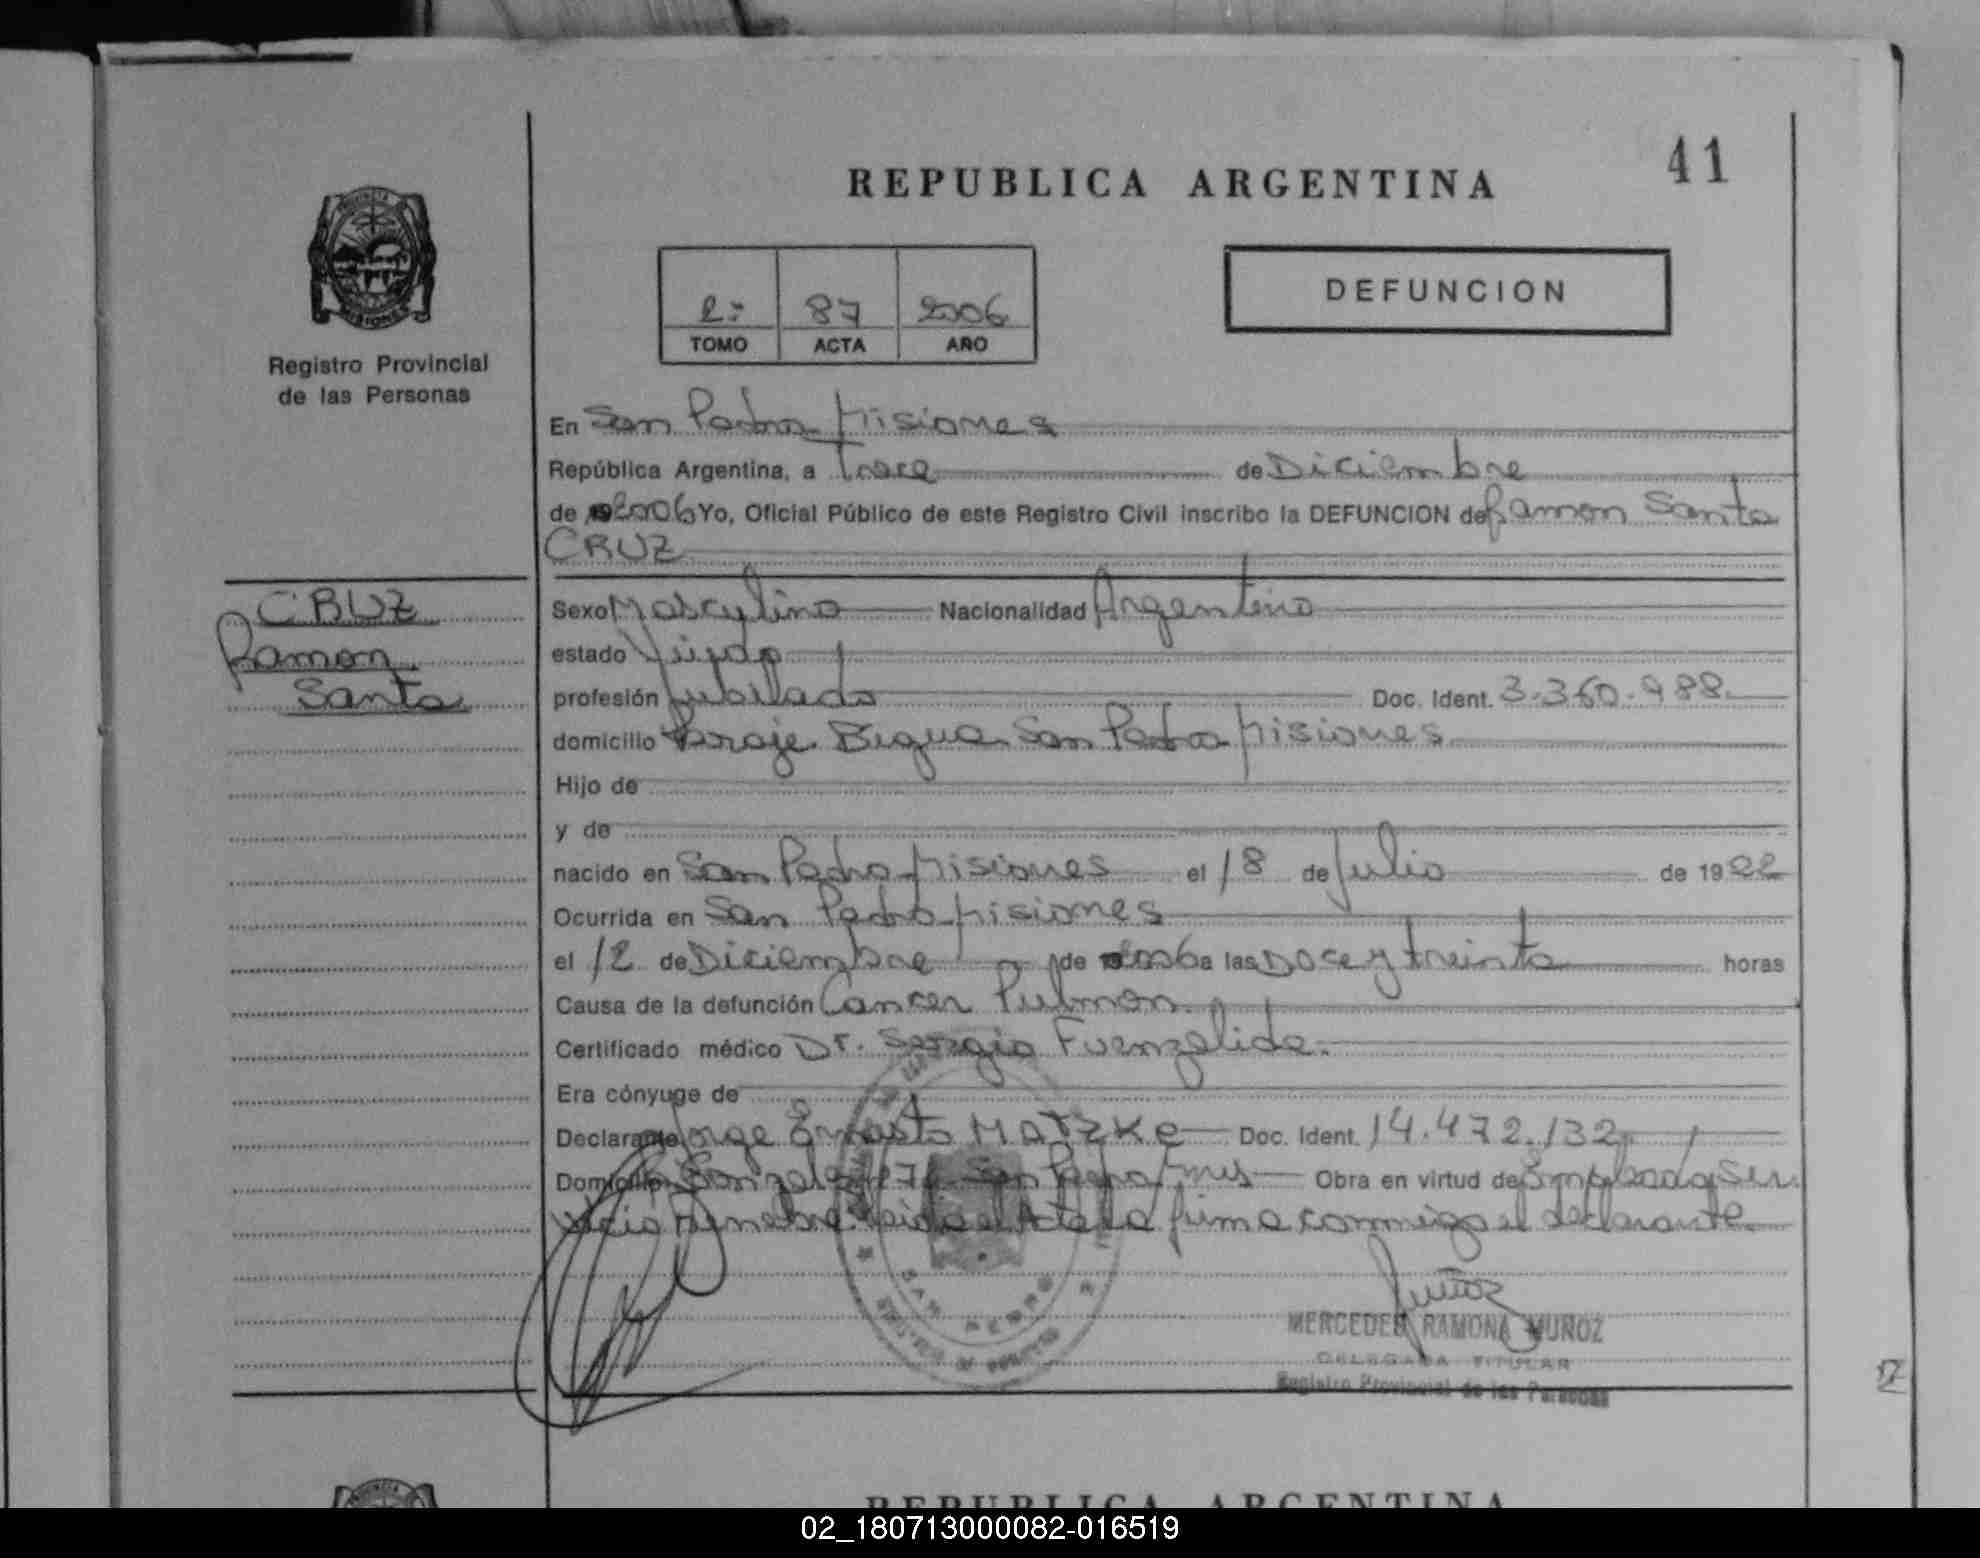 41
REPUBLICA ARGENTINA
2º 87 2006
TOMO ACTA AÑO
DEFUNCION
PROVINCIA
MISIONES
Registro Provincial
de las Personas
En San Pedro Misiones
República Argentina, a Trece de Diciembre
de 2006 Yo, Oficial Público de este Registro Civil inscribo la DEFUNCION de Ramon Santa
CRUZ
CRUZ
Ramon
Santa
Sexo Masculino Nacionalidad Argentino
estado Viudo
profesión Jubilado Doc. Ident. 3.360.988
domicilio Paraje Bigua San Pedro Misiones
Hijo de
y de
nacido en San Pedro Misiones el 18 de Julio de 1922
Ocurrida en San Pedro Misiones
el 12 de Diciembre de 2006 a las Doce y treinta horas
Causa de la defunción Cancer Pulmon
Certificado médico Dr. Sergio Fuenzalida.
Era cónyuge de
Declarante Jorge Ernesto MATZKE Doc. Ident. 14.472.132
Domicilio San Pedro Mnes Obra en virtud de Empleado Ser
vicio Funebre leida el Acta la firma conmigo el declarante
SAN PEDRO
Muñoz
MERCEDES RAMONA MUÑOZ
DELEGADA TITULAR
Registro Provincial de las Personas
REPUBLICA ARGENTINA
02_180713000082-016519